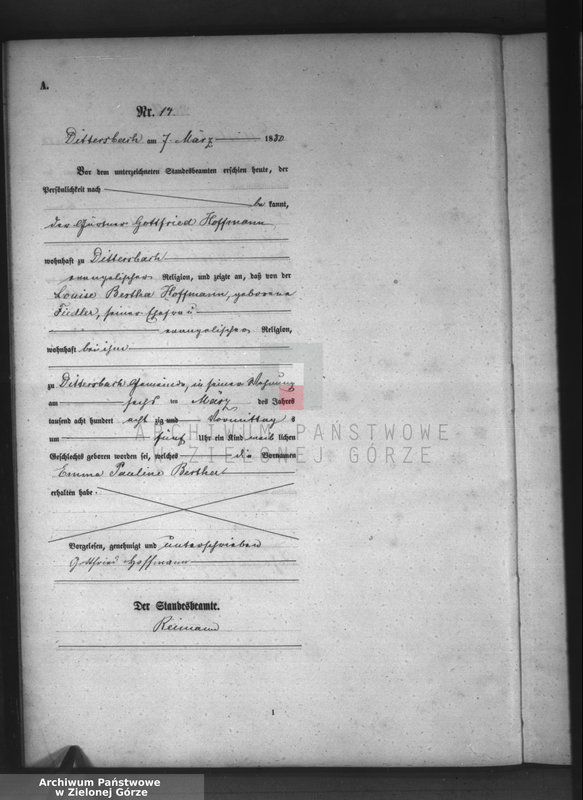 A.
Nr. 14
Dittersbach am 7. März 1880
Vor dem unterzeichneten Standesbeamten erschien heute, der
Persönlichkeit nach
bekannt,
der Gärtner Gottfried Hoffmann
wohnhaft zu Dittersbach
evangelischer Religion, und zeigte an, daß von der
Louise Bertha Hoffmann, geborene
Fiedler, seiner Ehefrau
evangelischer Religion,
wohnhaft bei ihm
zu Dittersbach Gemeinde, in seiner Wohnung
am sechs ten März des Jahres
tausend acht hundert acht zig und Vormittag s
um fünf Uhr ein Kind weib lichen
Geschlechts geboren worden sei, welches die Vornamen
Emma Pauline Bertha
erhalten habe
Vorgelesen, genehmigt und unterschrieben
Gottfried Hoffmann
Der Standesbeamte.
Reimann
1
ARCHIWUM PAŃSTWOWE
W ZIELONEJ GÓRZE
Archiwum Państwowe
w Zielonej Górze